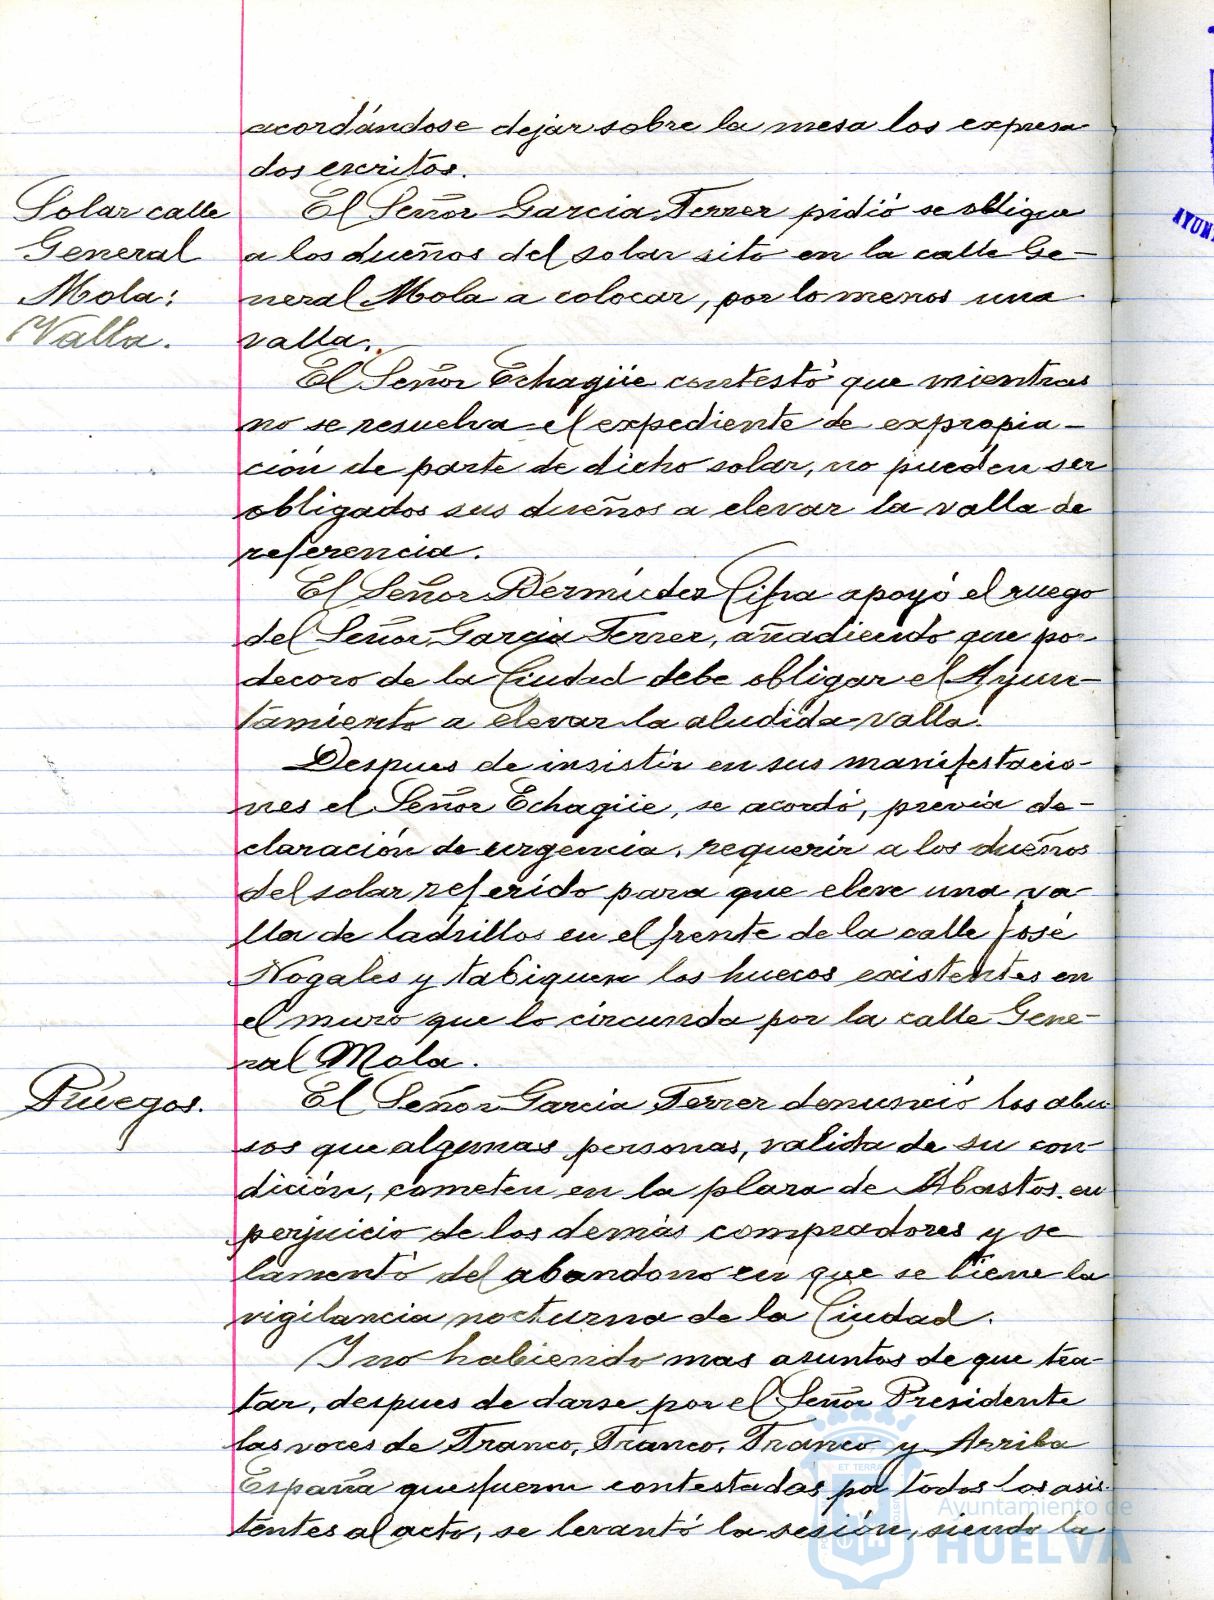 acordándose dejar sobre la mesa los expresa
dos escritos.
Solar calle
General
Mola:
Valla.
El Señor Garcia Ferrer pidió se obligue
a los dueños del solar sito en la calle Ge-
neral Mola a colocar, por lo menos una
valla.
El Señor Echagüe contestó que mientras
no se resuelva el expediente de expropia-
ción de parte de dicho solar, no pueden ser
obligados sus dueños a elevar la valla de
referencia.
El Señor Bermúdez Cifra apoyó el ruego
del Señor Garcia Ferrer, añadiendo que por
decoro de la Ciudad debe obligar el Ayun-
tamiento a elevar la aludida valla.
Despues de insistir en sus manifestacio-
nes el Señor Echagüe, se acordó, previa de-
claración de urgencia, requerir a los dueños
del solar referido para que eleve una va-
lla de ladrillos en el frente de la calle José
Nogales y tabiquen los huecos existentes en
el muro que lo circunda por la calle Gene-
ral Mola.
Ruegos.
El Señor Garcia Ferrer denunció los abu-
sos que algunas personas, valida de su con-
dición, cometen en la plaza de Abastos en
perjuicio de los demás compradores y se
lamentó del abandono en que se tiene la
vigilancia nocturna de la Ciudad.
Y no habiendo mas asuntos de que tra-
tar, despues de darse por el Señor Presidente
las voces de Franco, Franco, Franco y Arriba
España que fueron contestadas por todos los asis-
tentes al acto, se levantó la sesión, siendo la
Ayuntamiento de
HUELVA